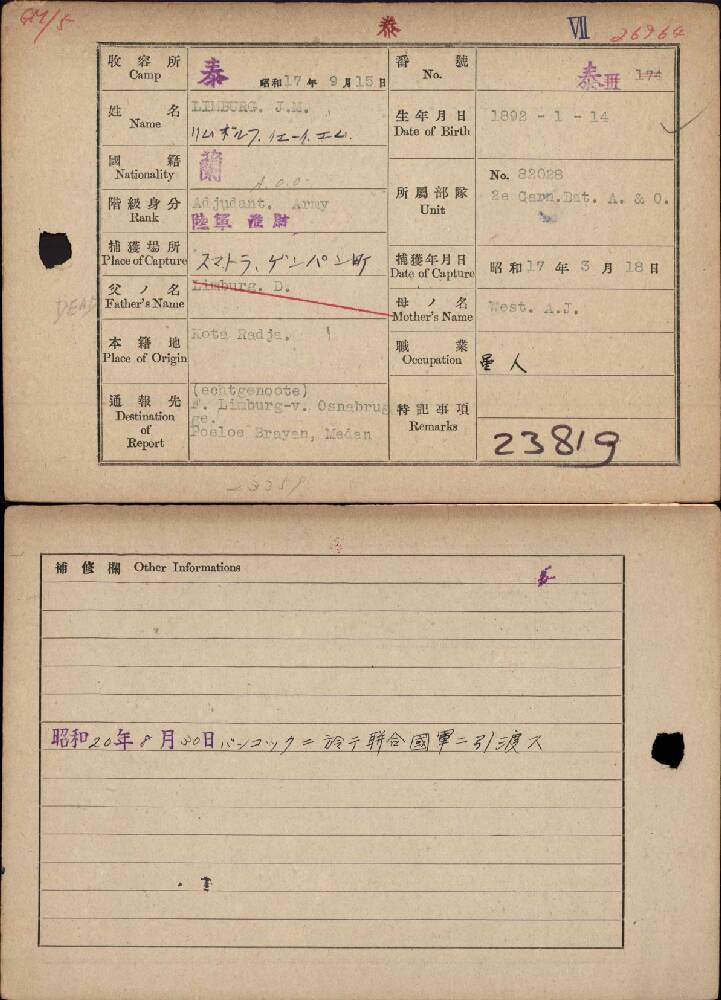 GM/5 泰 VII 26964
收容所 Camp 泰 昭和17年9月15日
番號 No. 泰III 174
姓名 Name LIMBURG. J.M.
リムボルフ.イェー.エム.
生年月日 Date of Birth 1892 - 1 - 14
國籍 Nationality 蘭
A.O.O.
階級身分 Rank Adjudant. Army
陸軍准尉
所屬部隊 Unit No. 82028
2e Garn.Bat. A. & O.
捕獲場所 Place of Capture スマトラ、
捕獲年月日 Date of Capture 昭和17年3月18日
父ノ名 Father's Name Limburg. D.
DEAD
母ノ名 Mother's Name West. A.J.
本籍地 Place of Origin Kota Radja.
職業 Occupation 軍人
通報先 Destination of Report (echtgenoote)
F. Limburg-v. Osnabrug
ge.
Poeloe Brayan, Medan
特記事項 Remarks
23819
補修欄 Other Informations
昭和20年8月30日バンコックニ於テ聯合國軍ニ引渡ス